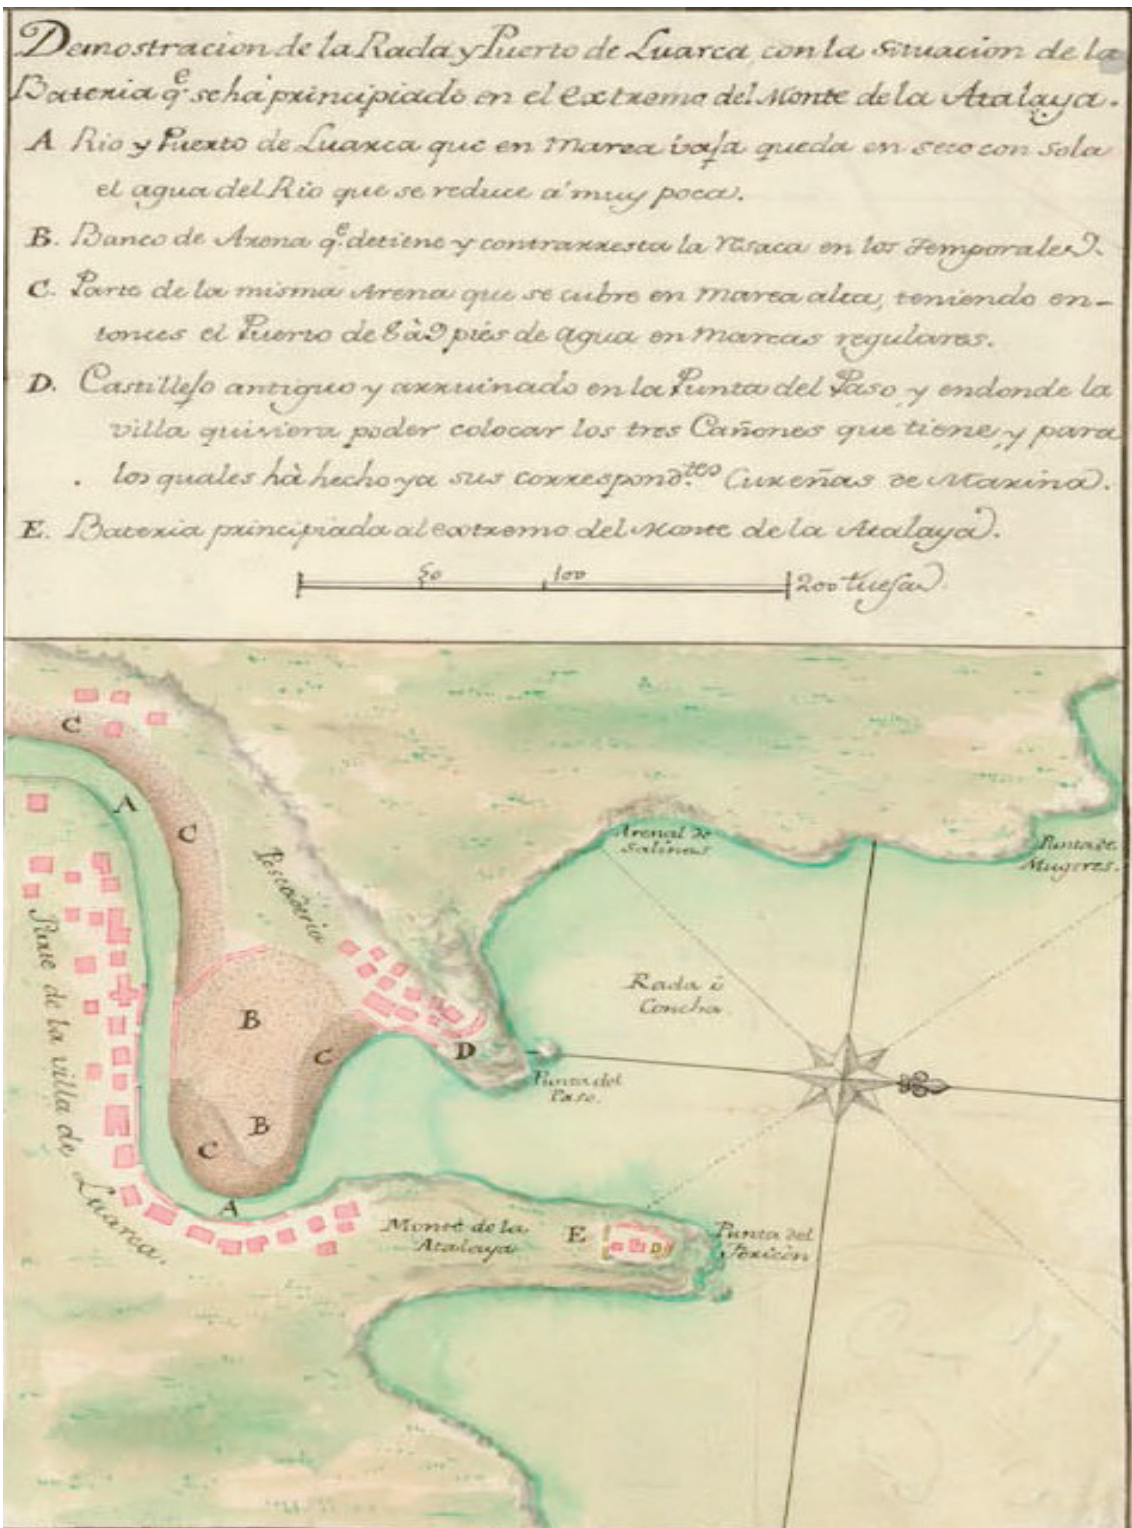 Demostracion de la Rada y Puerto de Luarca con la situacion de la
Bateria q.e se hà principiado en el extremo del Monte de la Atalaya.
A Rio y Puerto de Luarca que en marea baja queda en seco con sola
el agua del Rio que se reduce a' muy poca.
B. Banco de Arena q.e detiene y contrarresta la Resaca en los temporales.
C. Parte de la misma Arena que se cubre en marea alta, teniendo en-
tonces el Puerto de 8 à 9 piés de agua en mareas regulares.
D. Castillejo antiguo y arruinado en la Punta del Paso, y endonde la
villa quisiera poder colocar los tres Cañones que tiene, y para
los quales hà hecho ya sus correspond.tes Cureñas de Marina.
E. Bateria principiada al extremo del Monte de la Atalaya.
50 100 200 tuesas.
C
A
C
Arenal de
Salinas
Punta de
Mugeres.
Pescaderia
Parte de la villa de Luarca.
Rada ò
Concha.
B
C
D
Punta del
Paso.
B
C
A
Monte de la
Atalaya
E
Punta del